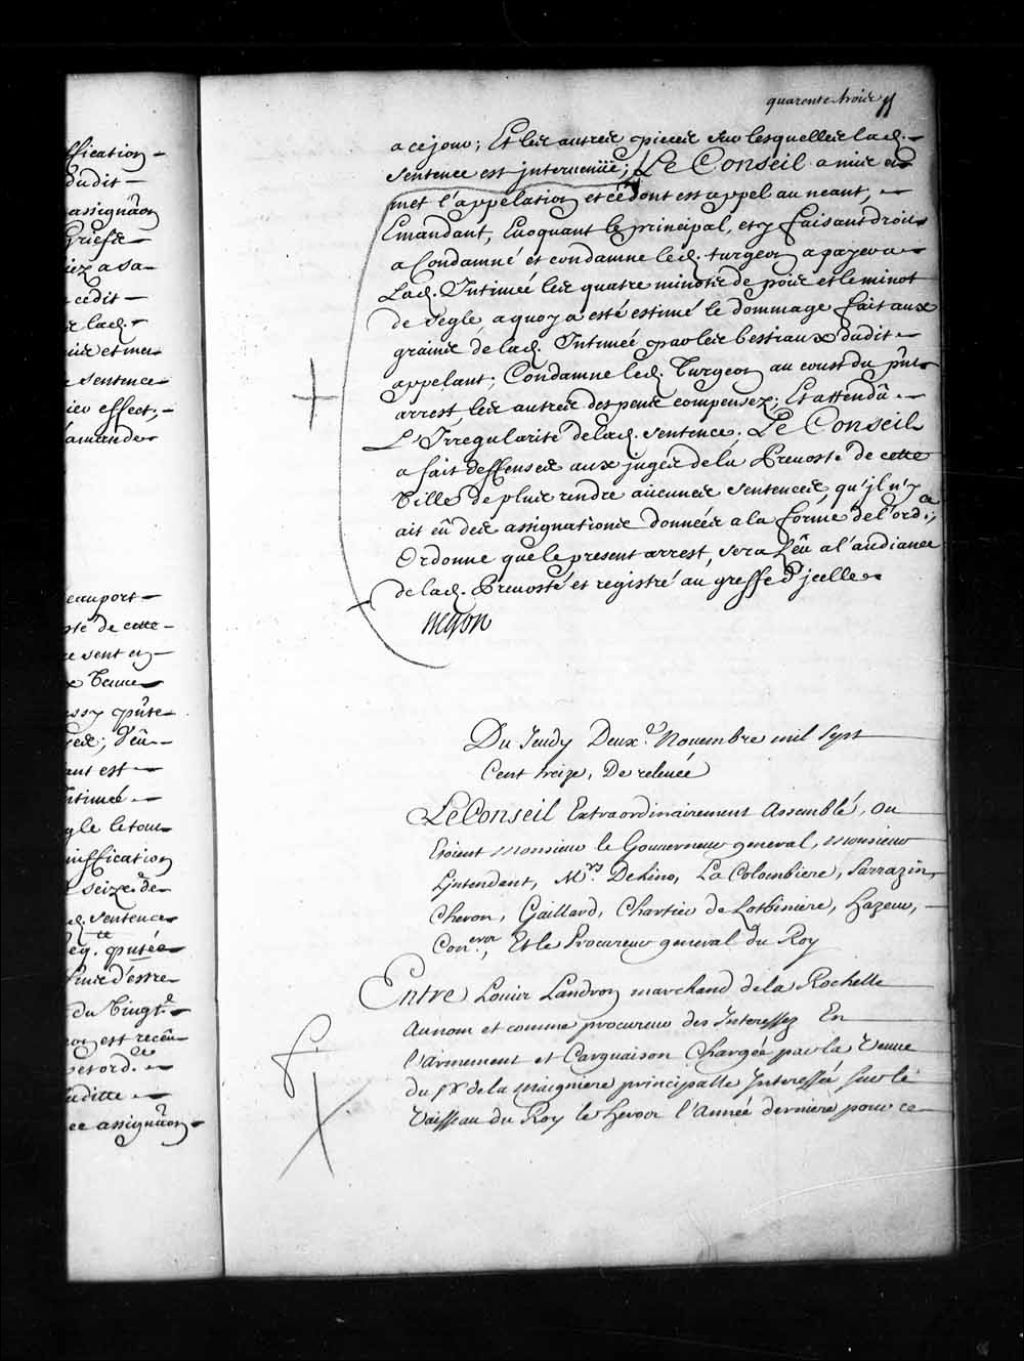 fication
dudit
assignãon
Griefs
iez a sa
cedit
lad.
et met
sentence
effect,
amande
eauport
de cette
sent en
pñte
d'eû
est
ntimée
le tout
niffication
seize de
sentence
d'estre
du Vingt.e
est recëu
ord.ce
uditte
ce assignãon
quarente trois
a ce jour; Et les autres pieces sur lesquelles lad.
sentence est jntervenüe; Le Conseil a mis et
met l'appelation et ce dont est appel au neant,
Emandant, Evoquant le principal, et y faisant droit
a Condamné et condamne led. turgeon a payer a
Lad. Intimée les quatre minots de pois et le minot
de segle, a quoy a esté estimé le dommage fait aux
grains de lad. Intimée par les bestiaux dudit
appelant; Condamne led. Turgeon au coust du pñt
arrest les autres despens compensez; Et attendû
L'Irregularité de lad. sentence. Le Conseil
a fait deffenses aux juges de la Prevosté de cette
Ville de plus rendre aucunes sentences, qu'jl n'y
ait eû des assignations données a la forme de l'ord.ce;
Ordonne que le present arrest, sera Leû a l'audiance
de lad. Prevosté et registré au greffe d'jcelle
Begon
Du Jeudy Deux.e Novembre mil sept
Cent treize, De relevée
Le Conseil Extraordinairement Assemblé, ou
Etoient Monsieur le Gouverneur general, Monsieur
L'jntendant, M.rs Delino, La Colombiere, Sarrazin,
Cheron, Gaillard, Chartier de Lotbiniere, hazeur,
Con.ers, Et le Procureur general du Roy
Entre Louis Landron marchand de la Rochelle
Au nom et comme procureur des Interessez En
l'armement et Carguaison Chargée par la Veuve
du S.r de la Maigniere principalle Jnteressée sur le
Vaisseau du Roy le heros l'Année derniere pour ce